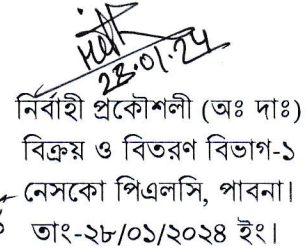 28.01.24
নির্বাহী প্রকৌশলী (অঃ দাঃ)
বিক্রয় ও বিতরণ বিভাগ-১
নেসকো পিএলসি, পাবনা।
তাং-২৮/০১/২০২৪ ইং।